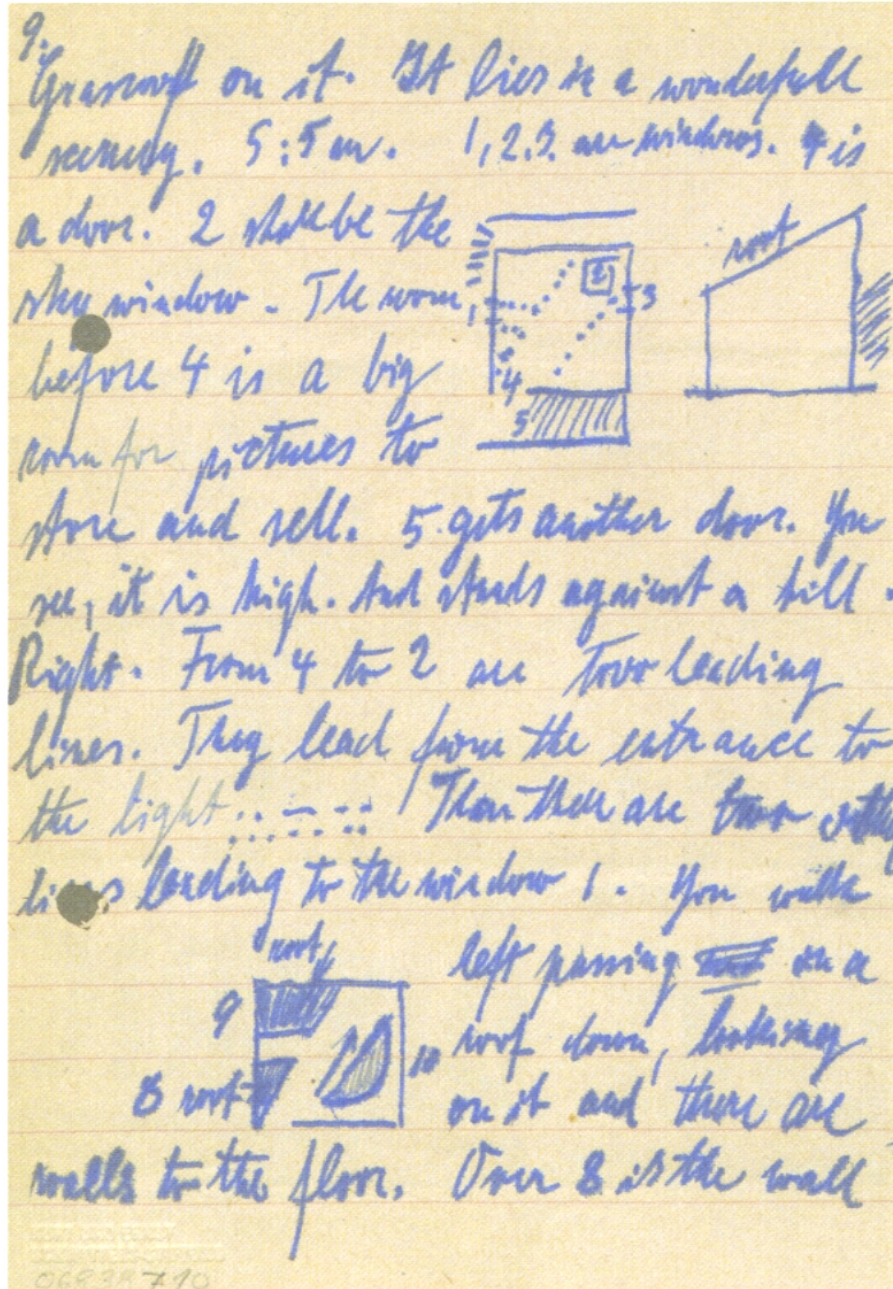 9.
Grasroof on it. It lies in a wonderfull
scenery. 5:5 m. 1,2.3. are windows. 4 is
a door. 2 shall be the
sky window. The room
before 4 is a big
room for pictures to
store and sell. 5 gets another door. You
see, it is high. And stands against a hill.
Right. From 4 to 2 are Tow leading
lines. They lead from the entrance to
the light Then there are two
lines leading to the window 1. You walk
left passing on a
roof down, looking
on it and there are
walls to the floor. Over 8 is the wall
1
2
3
4
5
roof
roof
9
8 roof
10
06838710